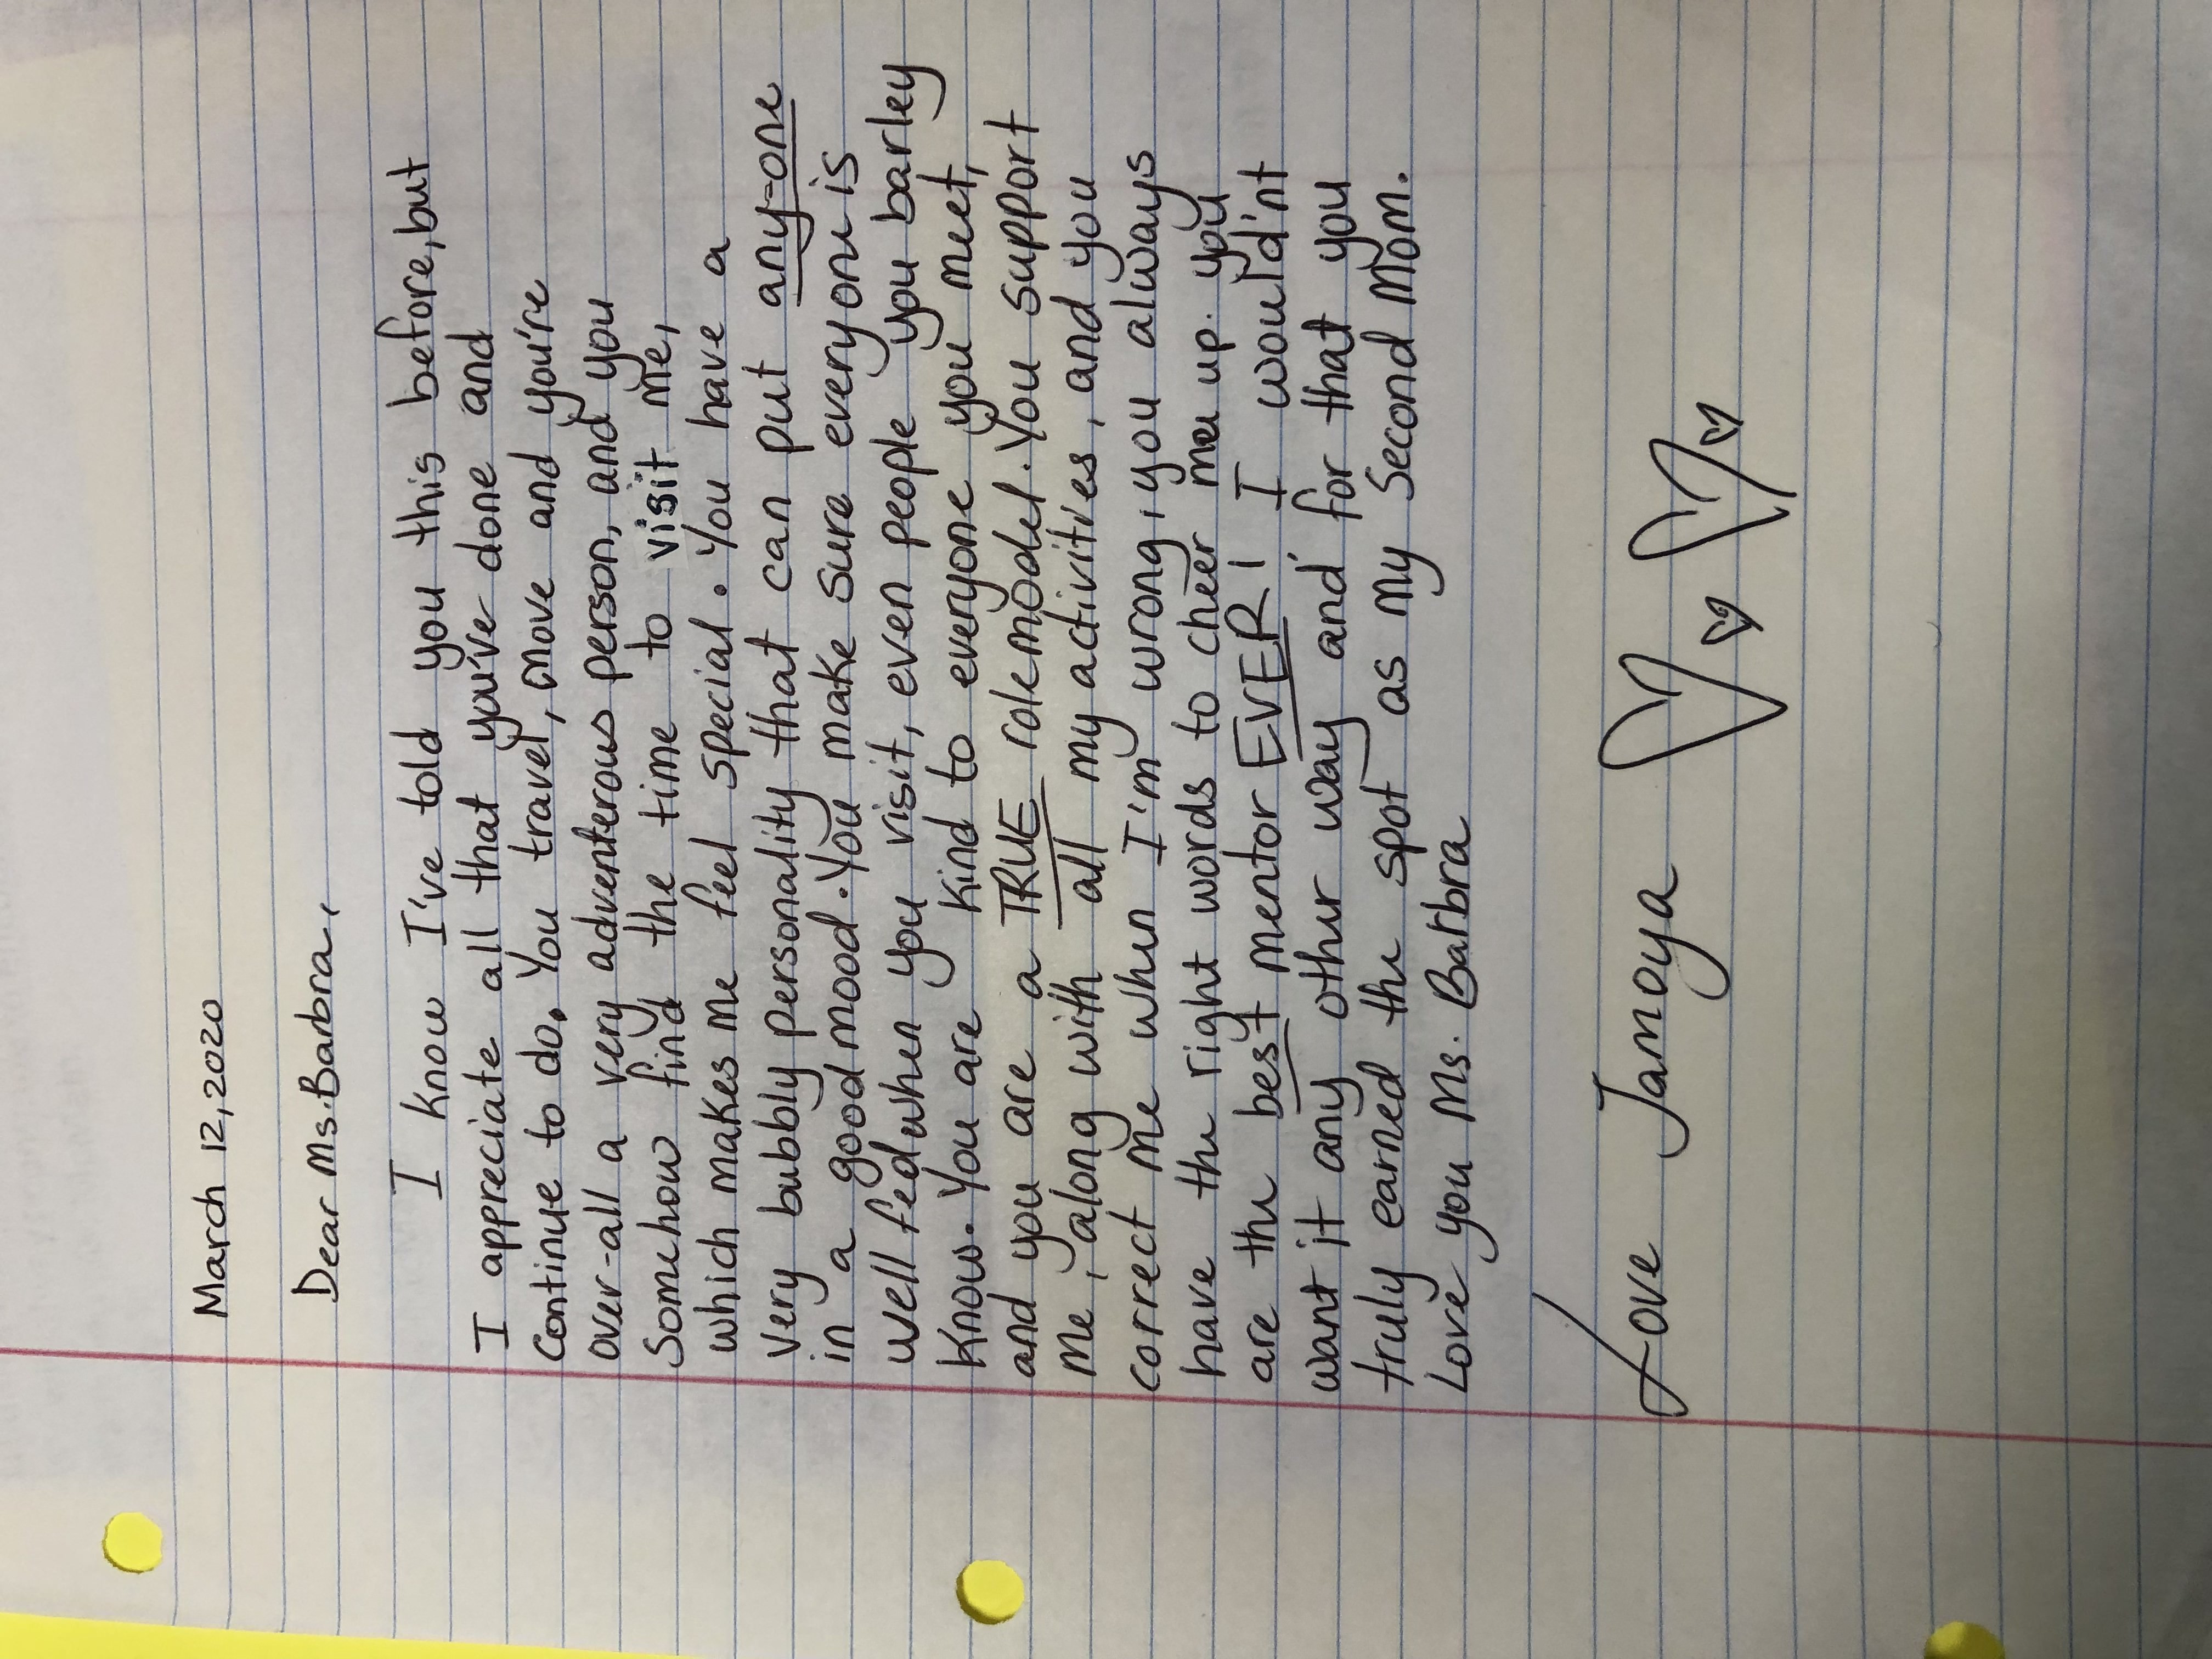 March 12, 2020
Dear Ms. Barbra,
I know I've told you this before, but
I appreciate all that you've done and
continue to do. You travel, move and you're
over-all a very adventerous person, and you
somehow find the time to visit me,
which makes me feel special. You have a
very bubbly personality that can put any-one
in a good mood. You make sure everyone is
well fed when you visit, even people you barley
know. You are kind to everyone you meet,
and you are a TRUE rolemodel. You support
me, along with all my activities, and you
correct me when I'm wrong, you always
have the right words to cheer me up. you
are the best mentor EVER! I would'nt
want it any other way and for that you
truly earned the spot as my Second Mom.
Love you Ms. Barbra
Love Jamoya